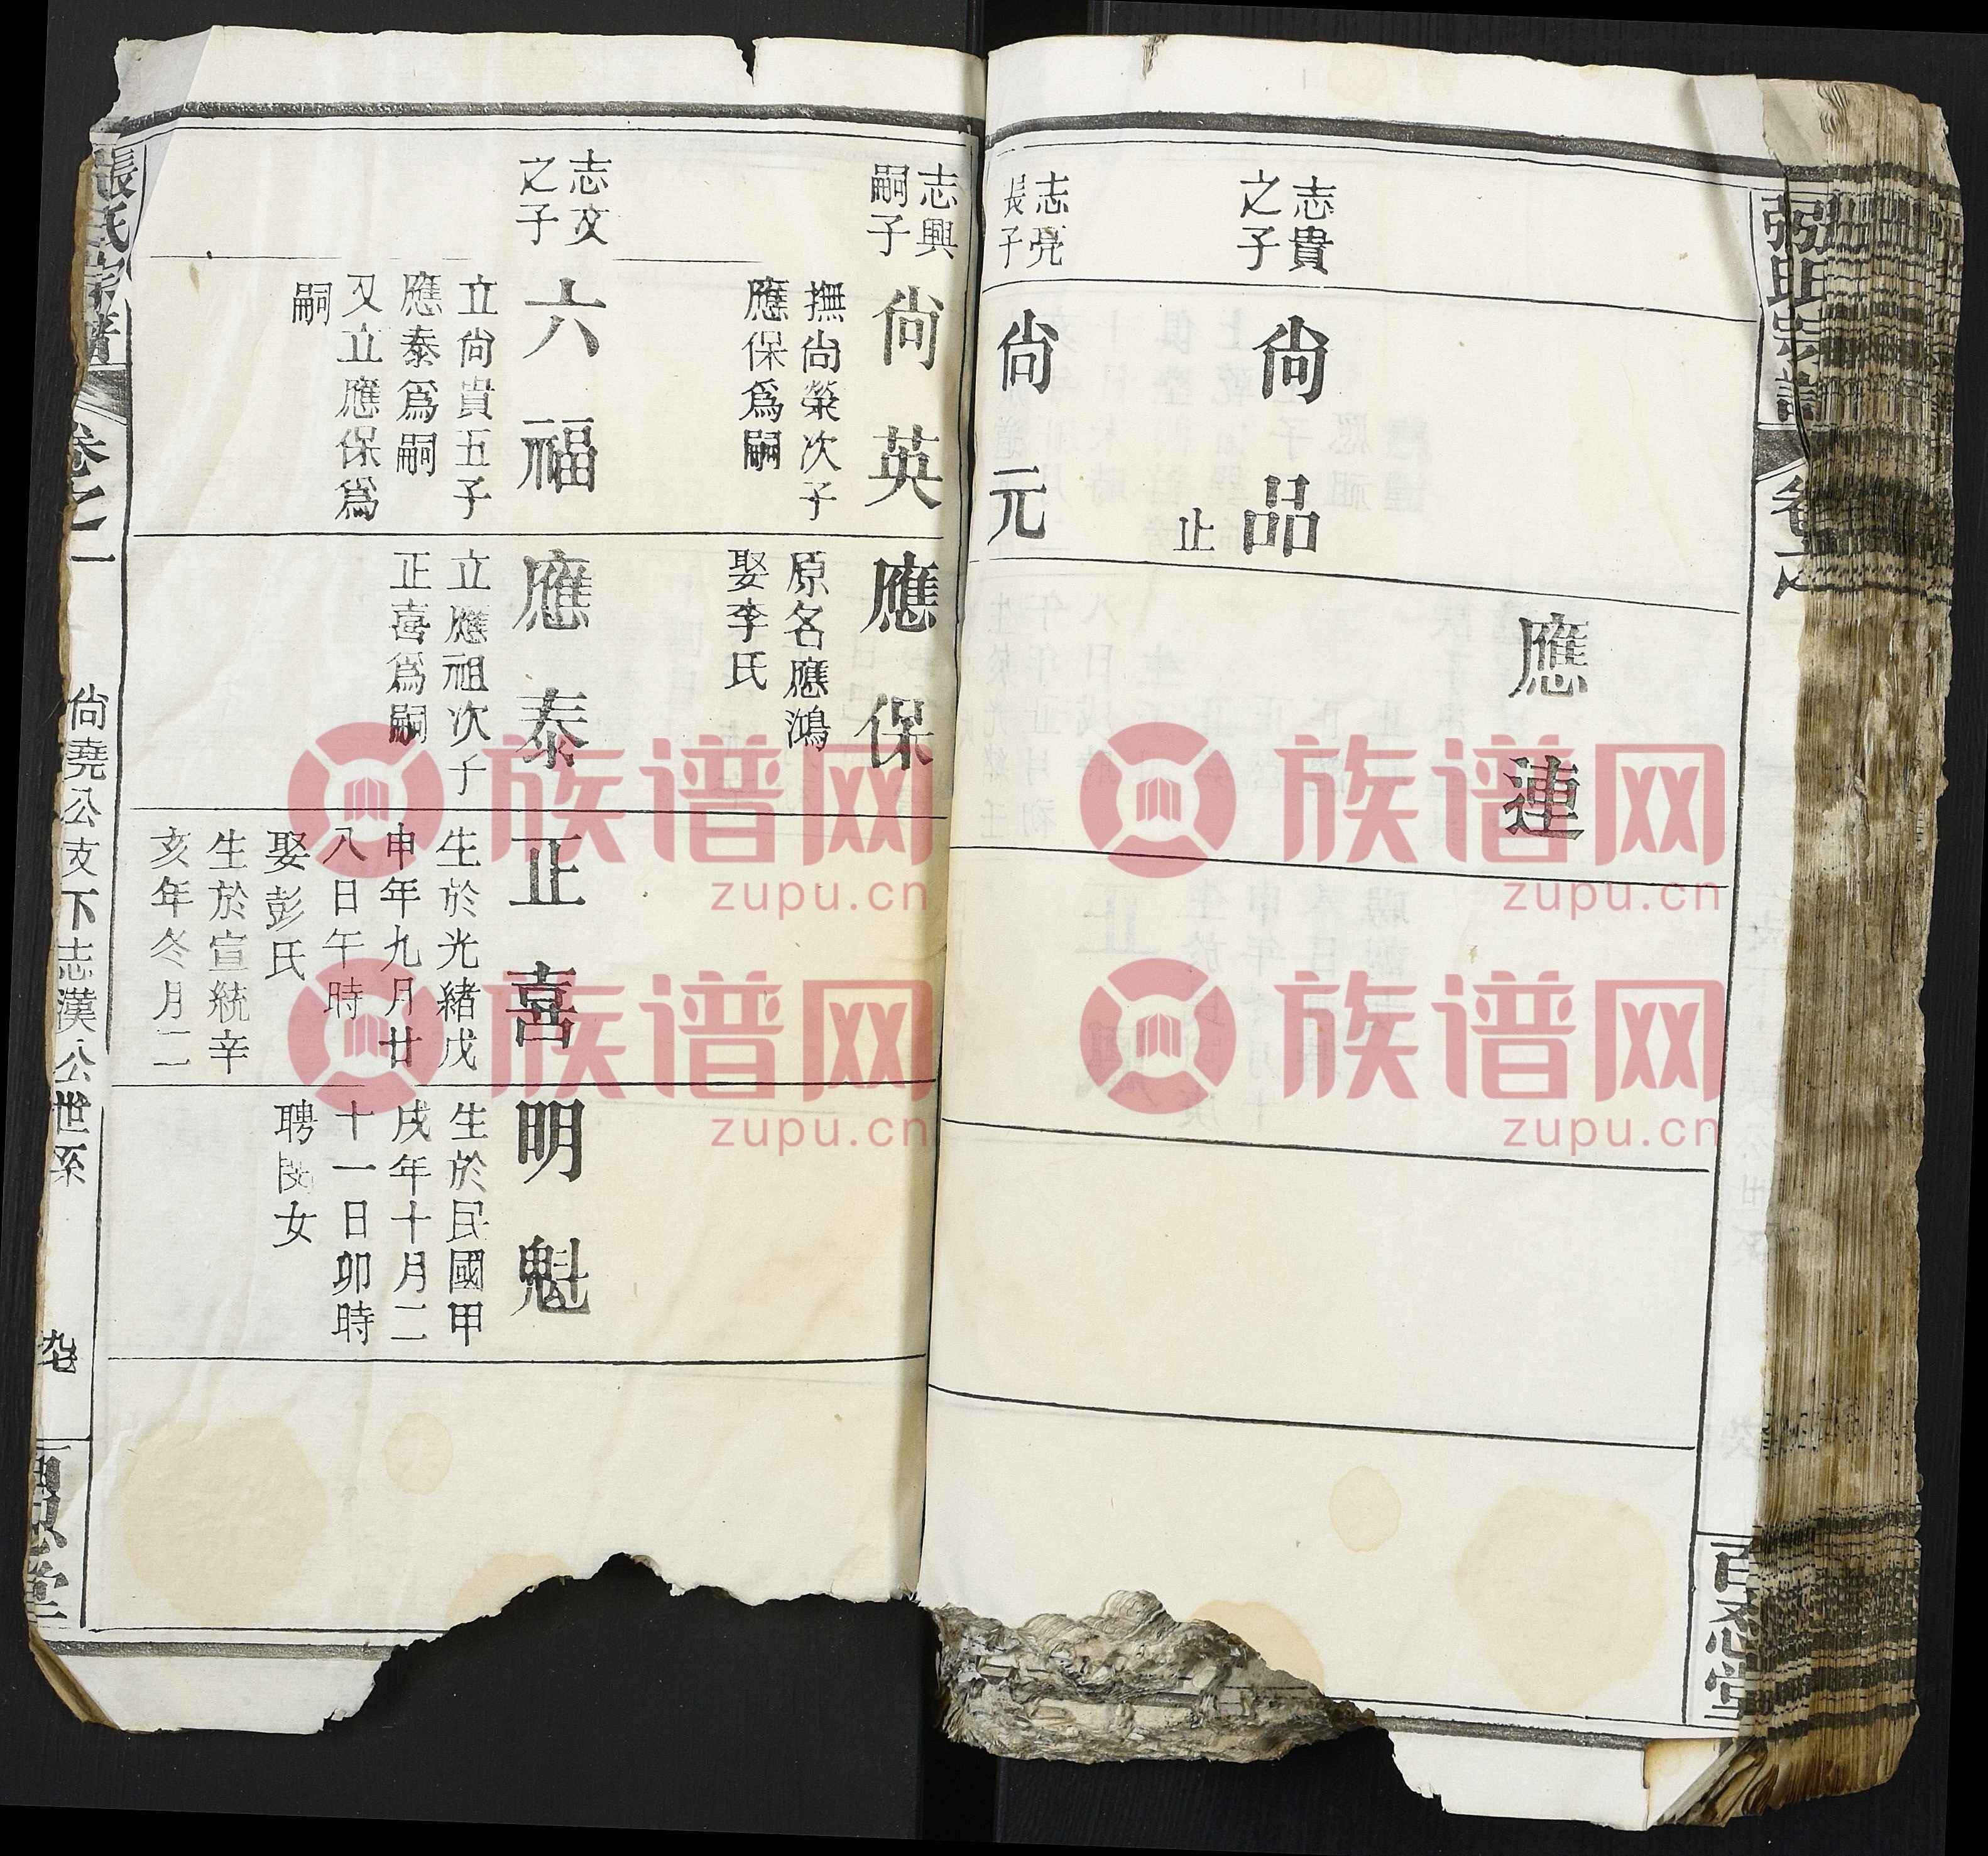 應連
志貴
之子
尙品
止
志亮
長子
尙元
志興
嗣子
尙英
撫尙榮次子
應保爲嗣
應保
原名應鴻
娶李氏
志文
之子
六福
立尙貴五子
應泰爲嗣
又立應保爲
嗣
應泰
立應祖次子
正喜爲嗣
正喜
生於光緒戊
申年九月廿
八日午時
娶彭氏
生於宣統辛
亥年冬月二
明魁
生於民國甲
戌年十月二
十一日卯時
聘閔女
張氏宗譜
卷之一
尙堯公支下志漢公世系
堂
族谱网
zupu.cn
族谱网
zupu.cn
族谱网
zupu.cn
族谱网
zupu.cn